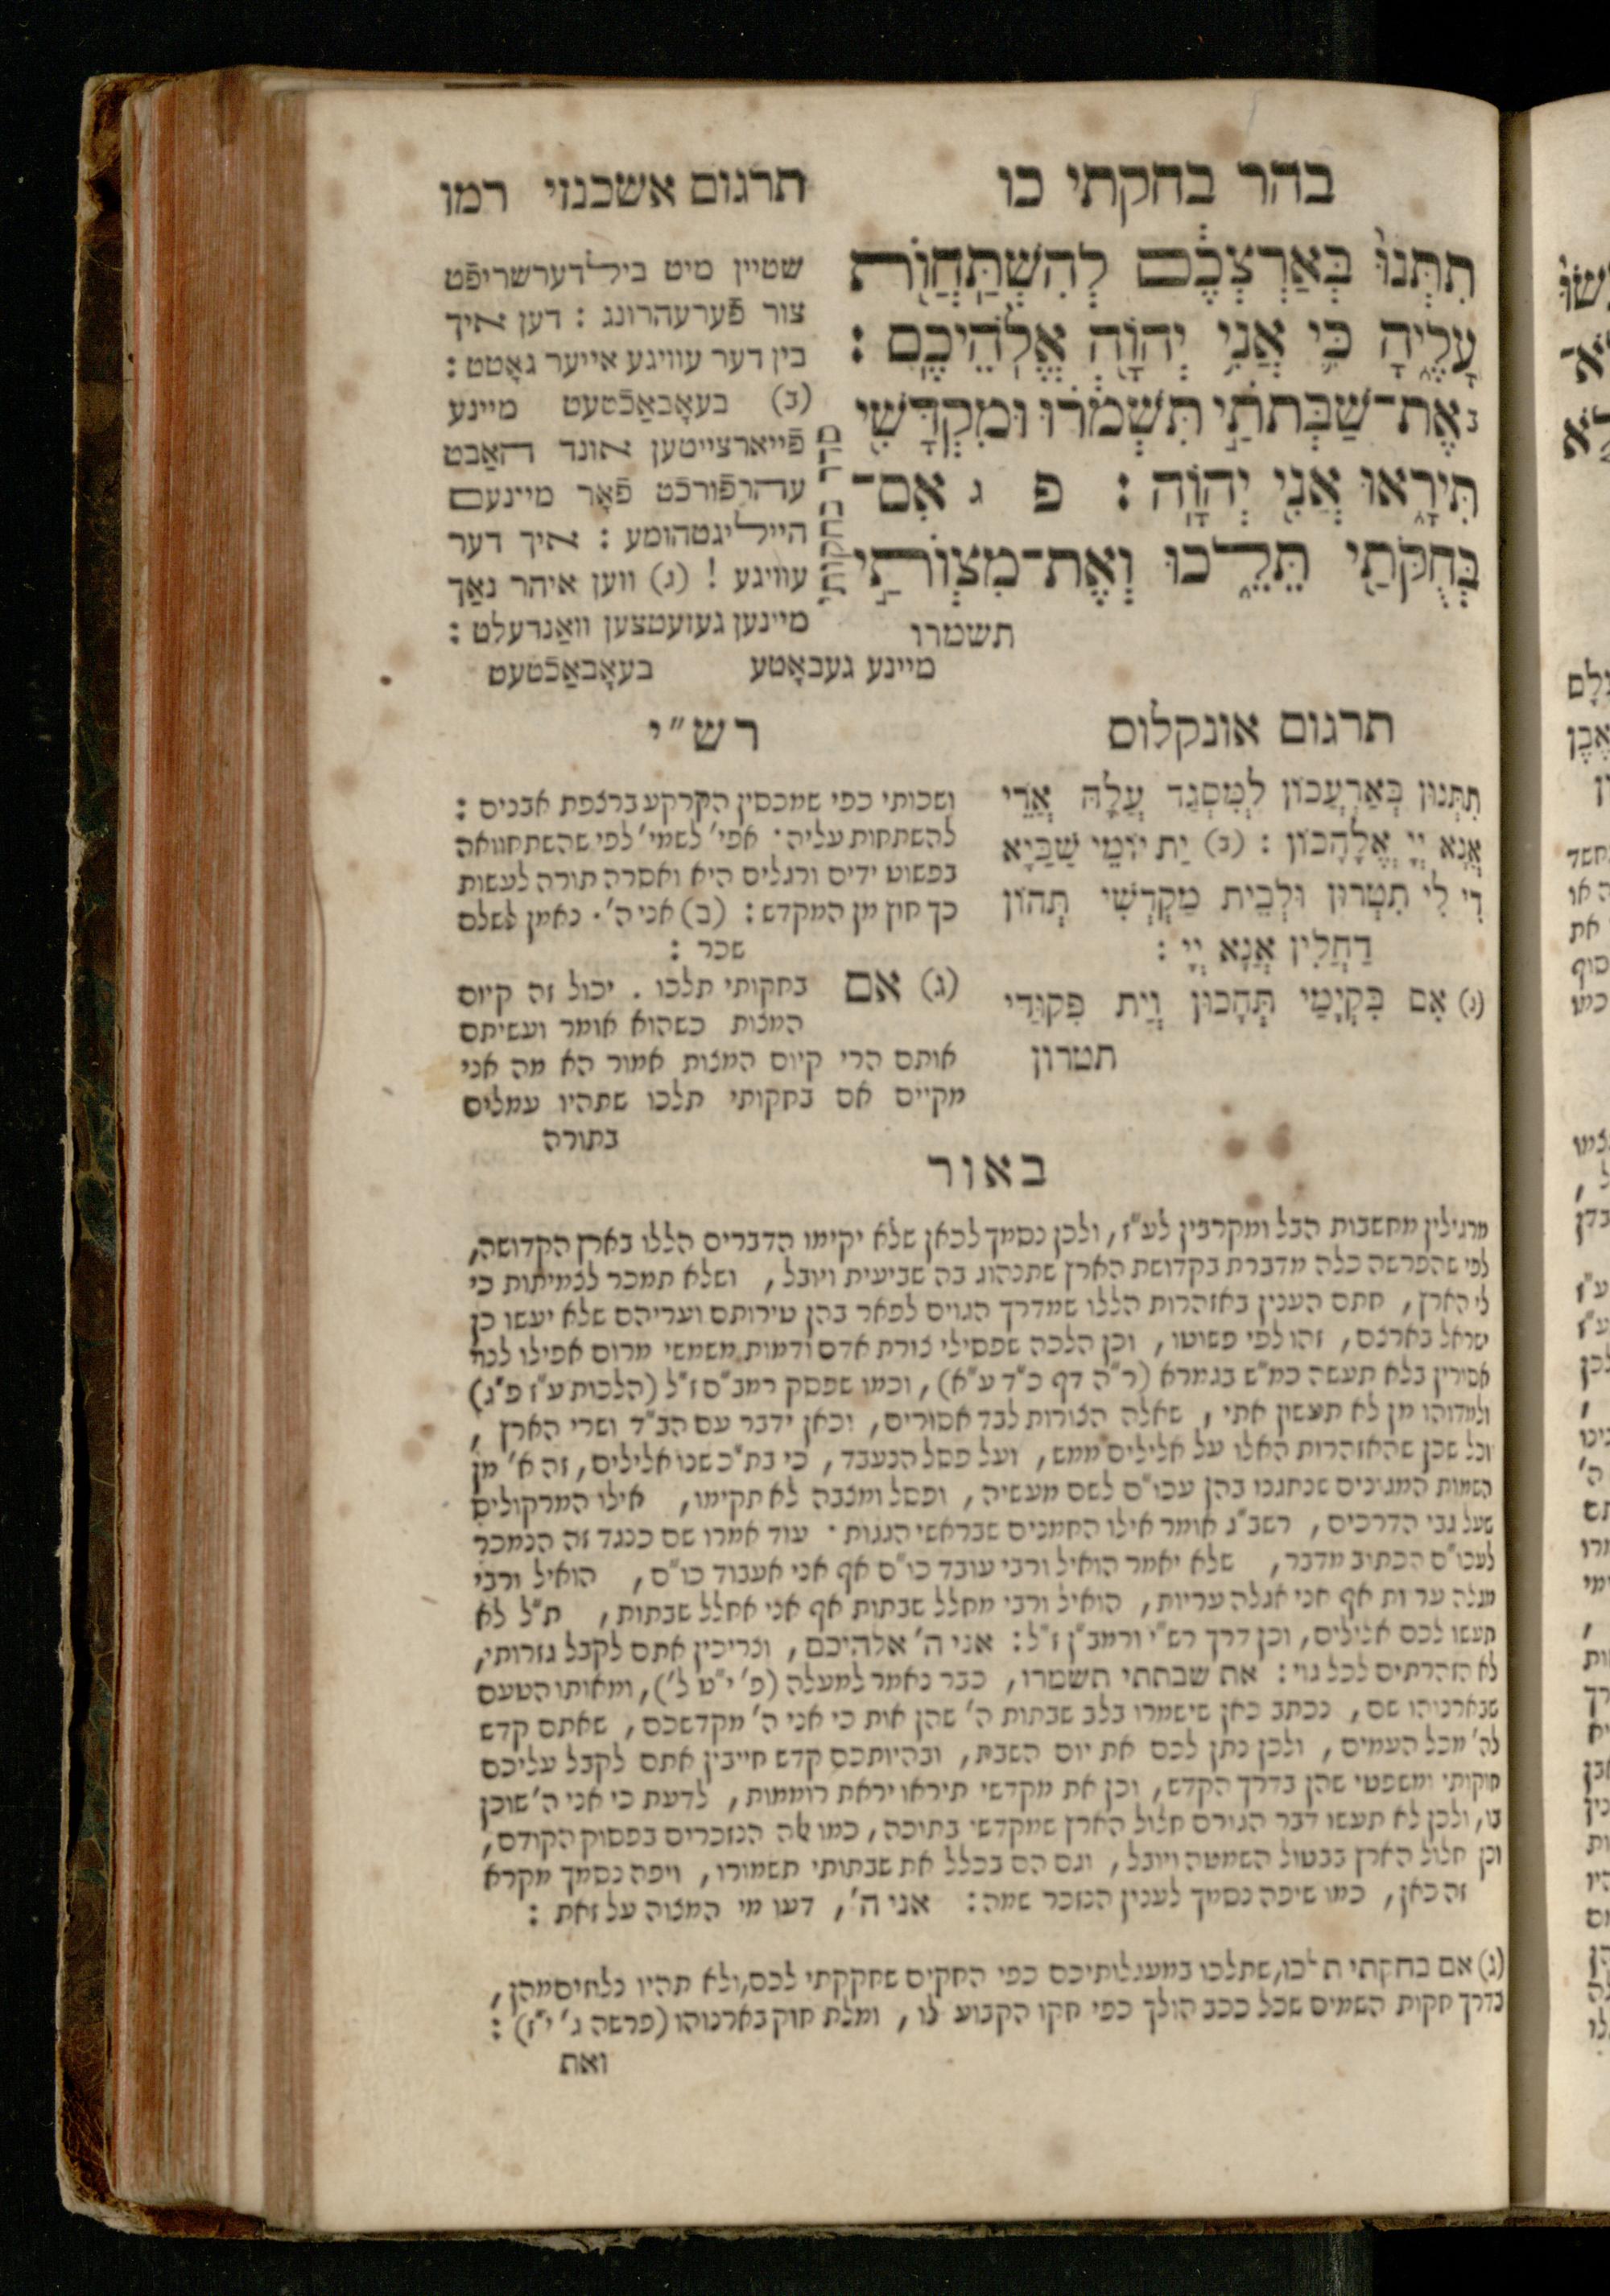 בהר בחקתי כו
תרגום אשכנזי רמו
תִתְּנוּ֙ בְּאַרְצְכֶ֔ם לְהִֽשְׁתַּחֲוֺ֖ת
עָלֶ֑יהָ כִּ֛י אֲנִ֥י יְהוָ֖ה אֱלֹהֵיכֶֽם :
ב אֶת־שַׁבְּתֹתַ֣י תִּשְׁמֹ֔רוּ וּמִקְדָּשִׁ֖י
תִּירָ֑אוּ אֲנִ֖י יְהוָֽה : פ ג אִם־
בְּחֻקֹּתַ֖י תֵּלֵ֑כוּ וְאֶת־מִצְוֺתַ֣י
תשמרו
סדר בחקתי
שטיין מיט בילדערשריפֿט
צור פֿערעהרונג : דען איך
בין דער עוויגע אייער גאָטט :
(ב) בעאָבאַכֿטעט מיינע
פֿייארצייטען אונד האַבט
עהרפֿורכֿט פֿאָר מיינעם
הייליגטהומע : איך דער
עוויגע ! (ג) ווען איהר נאַך
מיינען געזעטצען וואַנדעלט :
מיינע געבאָטע בעאָבאַכֿטעט
תרגום אונקלוס
תִתְּנוּן בְּאַרְעֲכוֹן לְמִסְגַד עֲלָהּ אֲרֵי
אֲנָא יְיָ אֱלָהֲכוֹן : (ב) יַת יוֹמֵי שַׁבַּיָא
דִי לִי תִטְרוּן וּלְבֵית מַקְדְשִׁי תְּהוֹן
דַחֲלִין אֲנָא יְיָ :
(ג) אִם בִּקְיָמַי תְּהָכוּן וְיַת פִּקוּדַי
תטרון
רש"י
ושכותי כפי שמכסין הקרקע ברצפת אבנים :
להשתחות עליה · אפי' לשמי' לפי שהשתחוואה
בפשוט ידים ורגלים היא ואסרה תורה לעשות
כך חוץ מן המקדש : (ב) אני ה' · נאמן לשלם
שכר :
(ג) אם בחקותי תלכו . יכול זה קיום
המצות כשהוא אומר ועשיתם
אותם הרי קיום המצות אמור הא מה אני
מקיים אם בחקותי תלכו שתהיו עמלים
בתורה
באור
מרגילין מחשבות הבל ומקרבין לע"ז, ולכן נסמך לכאן שלא יקימו הדברים הללו בארץ הקדושה,
לפי שהפרשה כלה מדברת בקדושת הארץ שתנהוג בה שביעית ויובל, ושלא תמכר לצמיתות כי
לי הארץ, חתם הענין באזהרות הללו שמדרך הגוים לפאר בהן טירותם ועריהם שלא יעשו כן
ישראל בארצם, זהו לפי פשוטו, וכן הלכה שפסילי צורת אדם ודמות משמשי מרום אפילו לנוי
אסירין בלא תעשה כמ"ש בגמרא (ר"ה דף כ"ד ע"א), וכמו שפסק רמב"ם ז"ל (הלכות ע"ז פ"ג)
ולמדוהו מן לא תעשון אתי, שאלה הצורות לבד אסורים, וכאן ידבר עם הב"ד ושרי הארץ,
וכל שכן שהאזהרות האלו על אלילים ממש, ועל פסל הנעבד, כי בת"כ שנו אלילים, זה א' מן
השמות המגונים שנתגנו בהן עכו"ם לשם מעשיה, ופסל ומצבה לא תקימו, אילו המרקולים
שעל גבי הדרכים, רשב"ג אומר אילו החמנים שבראשי הגגות · עוד אמרו שם כנגד זה הנמכר
לעכו"ם הכתיב מדבר, שלא יאמר הואיל ורבי עובד כו"ם אף אני אעבוד כו"ם, הואיל ורבי
מגלה עריות אף אני אגלה עריות, הואיל ורבי מחלל שבתות אף אני אחלל שבתות, ת"ל לא
תעשו לכם אלילים, וכן דרך רש"י ורמב"ן ז"ל : אני ה' אלהיכם, וצריכין אתם לקבל גזרותי,
לא הזהרתים לכל גוי : את שבתתי תשמרו, כבר נאמר למעלה (פ' י"ט ל'), ומאותו הטעם
שבארנוהו שם, נכתב כאן שישמרו בלב שבתות ה' שהן אות כי אני ה' מקדשכם, שאתם קדש
לה' מכל העמים, ולכן נתן לכם את יום השבת, ובהיותכם קדש חייבין אתם לקבל עליכם
חוקותי ומשפטי שהן בדרך הקדש, וכן את מקדשי תיראו יראת רוממות, לדעת כי אני ה' שוכן
בו, ולכן לא תעשו דבר הגורם חלול הארץ שמקדשי בתוכה, כמו אלה הנזכרים בפסוק הקודם,
וכן חלול הארץ בבטול השמטה ויובל, וגם הם בכלל את שבתותי תשמורו, ויפה נסמך מקרא
זה כאן, כמו שיפה נסמך לענין הנזכר שמה : אני ה', דעו מי המצוה על זאת :
(ג) אם בחקתי תלכו, שתלכו במעגלותיכם כפי החקים שחקקתי לכם, ולא תהיו נלחים מהן,
בדרך חקות השמים שכל ככב הולך כפי חקו הקבוע לו, ומלת חוק בארנוהו (פרשה ג' י"ז) :
ואת